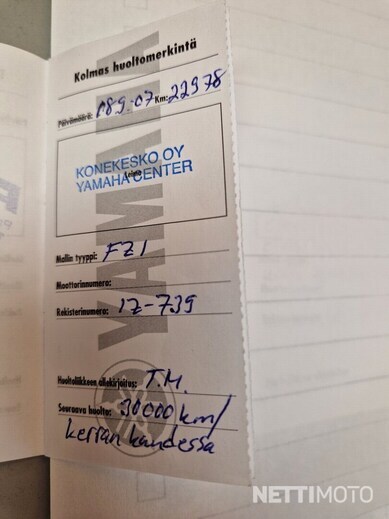 Kolmas huoltomerkintä
Päivämäärä: 18.9.-07 Km: 22978
KONEKESKO OY
YAMAHA CENTER
Leima
YAMAHA
Mallin tyyppi: FZ1
Moottorinnumero:
Rekisterinumero: IZ-739
Huoltoliikkeen allekirjoitus: T.M.
Seuraava huolto: 30000 km/
kerran kaudessa
NETTIMOTO